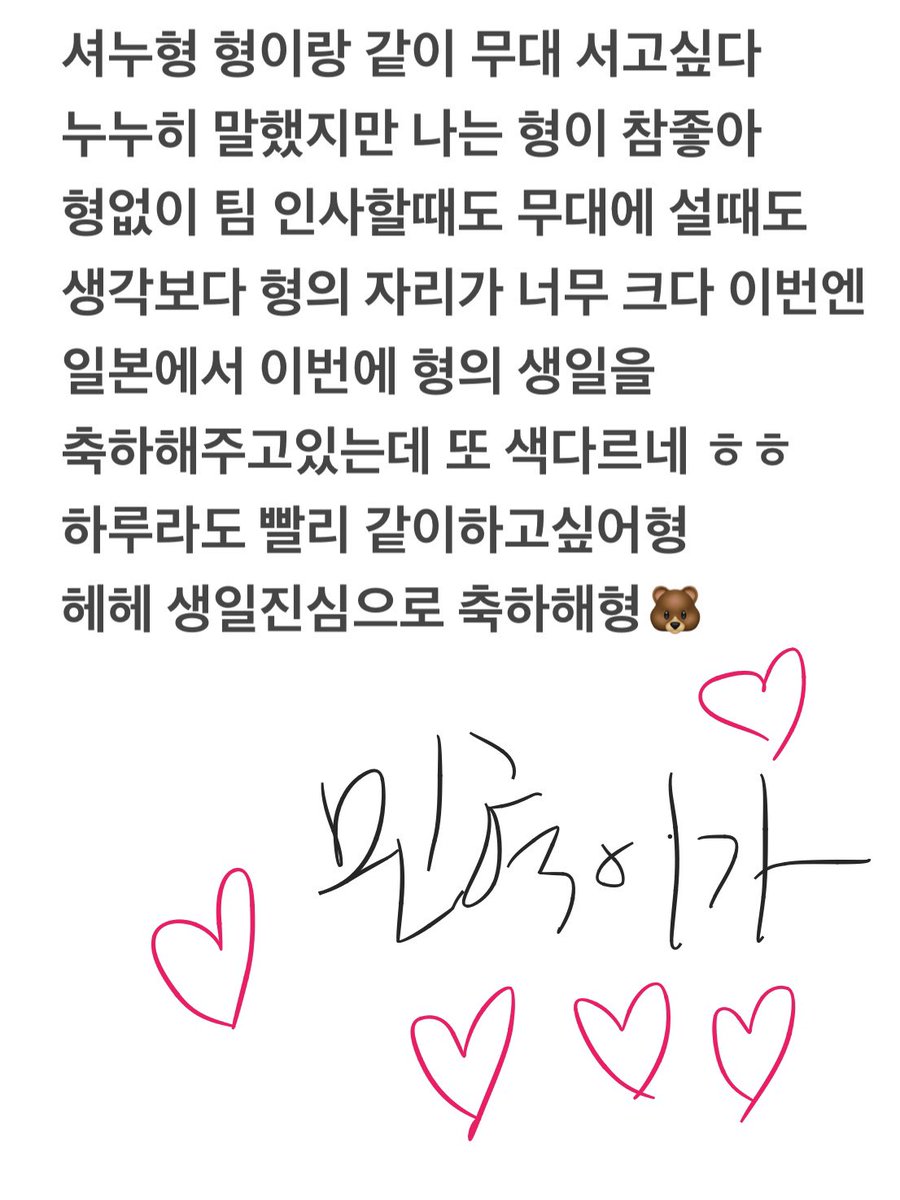 셔누형 형이랑 같이 무대 서고싶다
누누히 말했지만 나는 형이 참좋아
형없이 팀 인사할때도 무대에 설때도
생각보다 형의 자리가 너무 크다 이번엔
일본에서 이번에 형의 생일을
축하해주고있는데 또 색다르네 ㅎㅎ
하루라도 빨리 같이하고싶어형
헤헤 생일진심으로 축하해형🐻
민혁이가